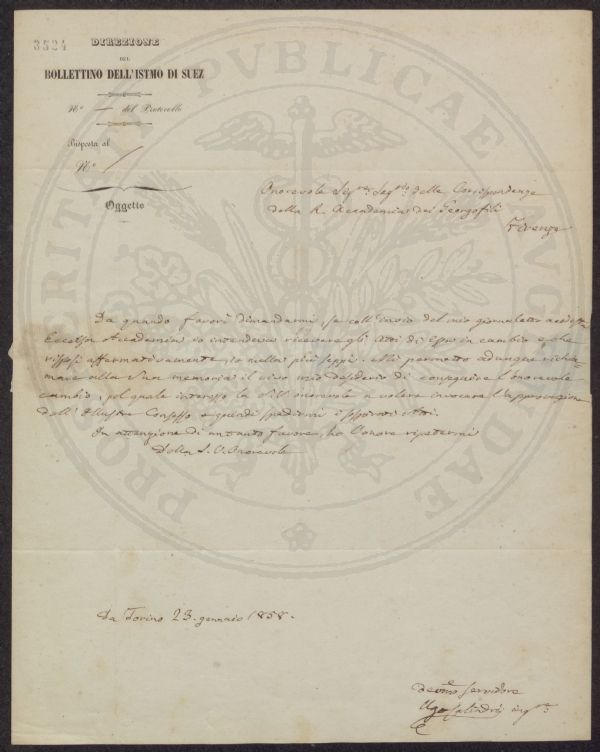 3524
DIREZIONE
DEL
BOLLETTINO DELL'ISTMO DI SUEZ
N.º — del Protocollo
Risposta al
N.º /
Oggetto
Onorevole Sig.re Seg.rio delle Corrispondenze
della R. Accademia dei Georgofili
Firenze
Da quando favorì dimandarmi, se coll'invio del mio giornaletto a
Eccelsa Accademia io intendeva ricevere gli Atti di Essa in cambio e che
risposi affermativamente, io nulla più seppi. Mi permetto adunque richia-
mare alla Sua memoria il vivo mio desiderio di conseguire l'onorevole
cambio, pel quale interesso la S.V. onorevole a volere invocare l'approvazione
dell'Illustre Consesso e quindi spedirmi i Atti.
In attenzione di cotanto favore, ho l'onore ripetermi
Della S.V. Onorevole
Da Torino 23. gennaio 1858.
dev.mo servidore
Ugo Calindri ing.re
PROSPERITATI PUBLICAE AUGENDAE